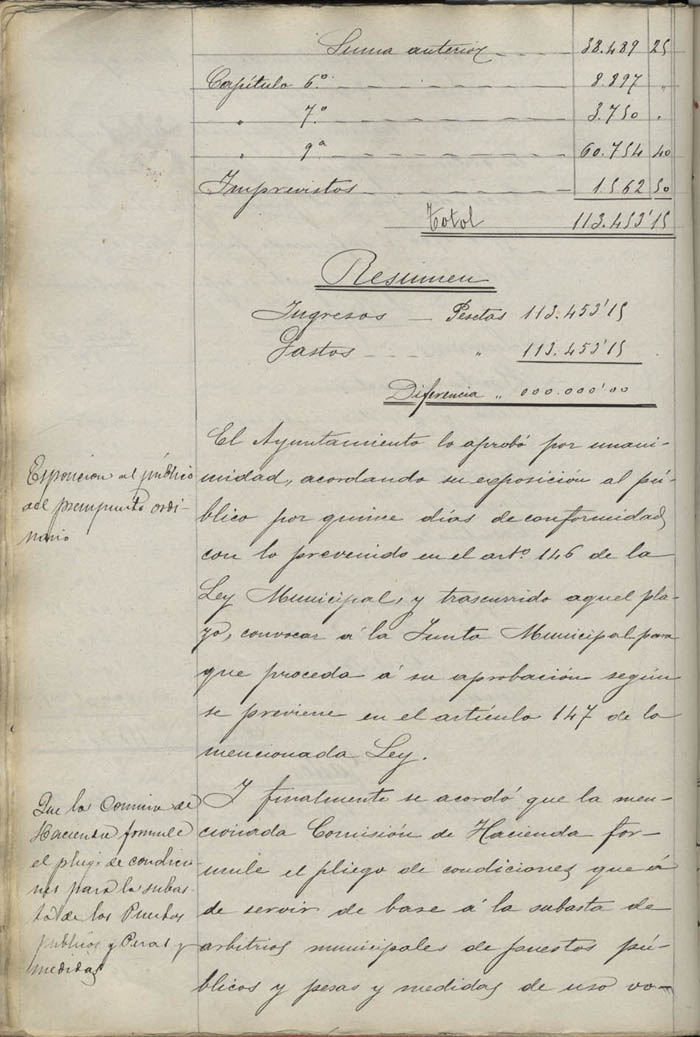 Suma anterior 38.489 25
Capítulo 6.º 8.897 "
" 7.º 3.750 "
" 9ª 60.754 40
Imprevistos 1.562 50
Total 113.453'15
Resumen
Ingresos Pesetas 113.453'15
Gastos " 113.453'15
Diferencia " 000.000'00
Esposición al público
del presupuesto ordi-
nario
El Ayuntamiento lo aprobó por unani-
midad, acordando su exposición al pú-
blico por quince días de conformidad
con lo prevenido en el artº 146 de la
Ley Municipal, y trascurrido aquel pla-
zo, convocar á la Junta Municipal para
que proceda á su aprobación según
se previene en el artículo 147 de la
mencionada Ley.
Que la Comision de
Hacienda formule
el pliego de condicio-
nes para la subas-
ta de los Puestos
públicos y Pesas y
medidas
I finalmente se acordó que la men-
cionada Comisión de Hacienda for-
mule el pliego de condiciones que á
de servir de base á la subasta de
arbitrios municipales de puestos pú-
blicos y pesas y medidas de uso vo-